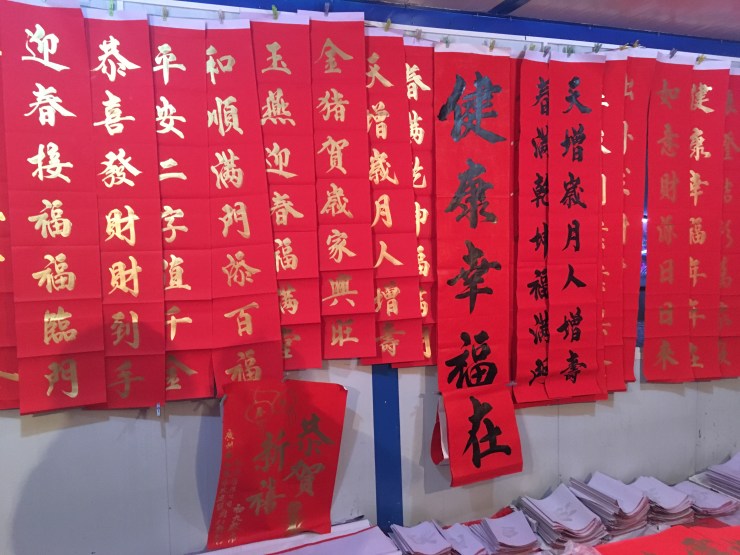 迎春接福福臨門
恭喜發財財到手
平安二字值千金
和順滿門添百福
玉燕迎春福滿堂
金猪賀歲家興旺
天增歲月人增壽
春滿乾坤福滿門
健康幸福在
春滿乾坤福滿門
天增歲月人增壽
如意財源日日來
健康幸福年年在
恭賀
新禧